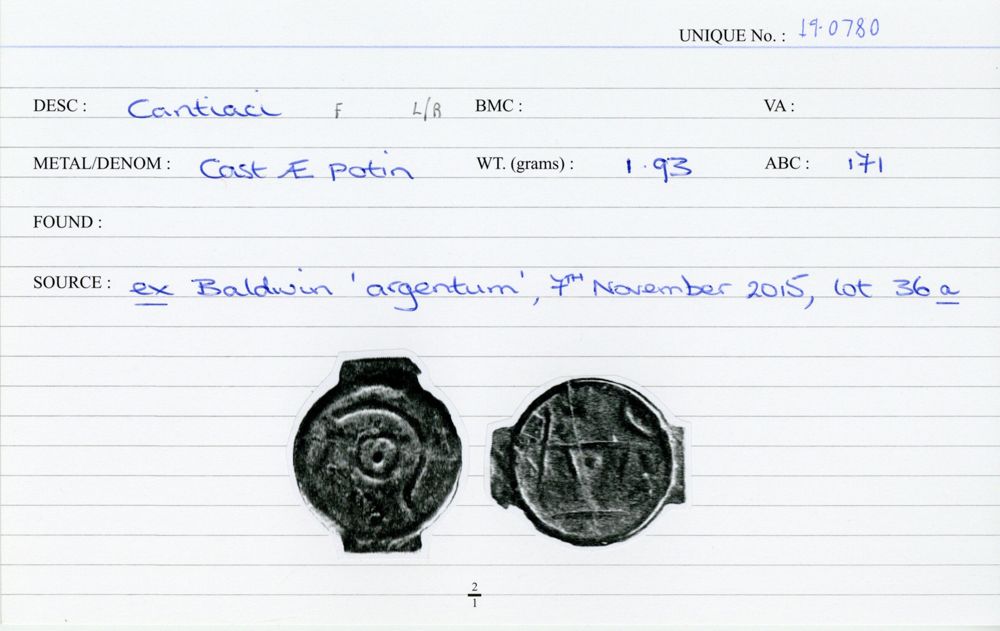 UNIQUE No. : 19.0780
DESC : Cantiaci F L/R BMC : VA :
METAL/DENOM : Cast Æ potin WT. (grams) : 1.93 ABC : 171
FOUND :
SOURCE : ex Baldwin 'argentum', 7TH November 2015, lot 36a
2
1